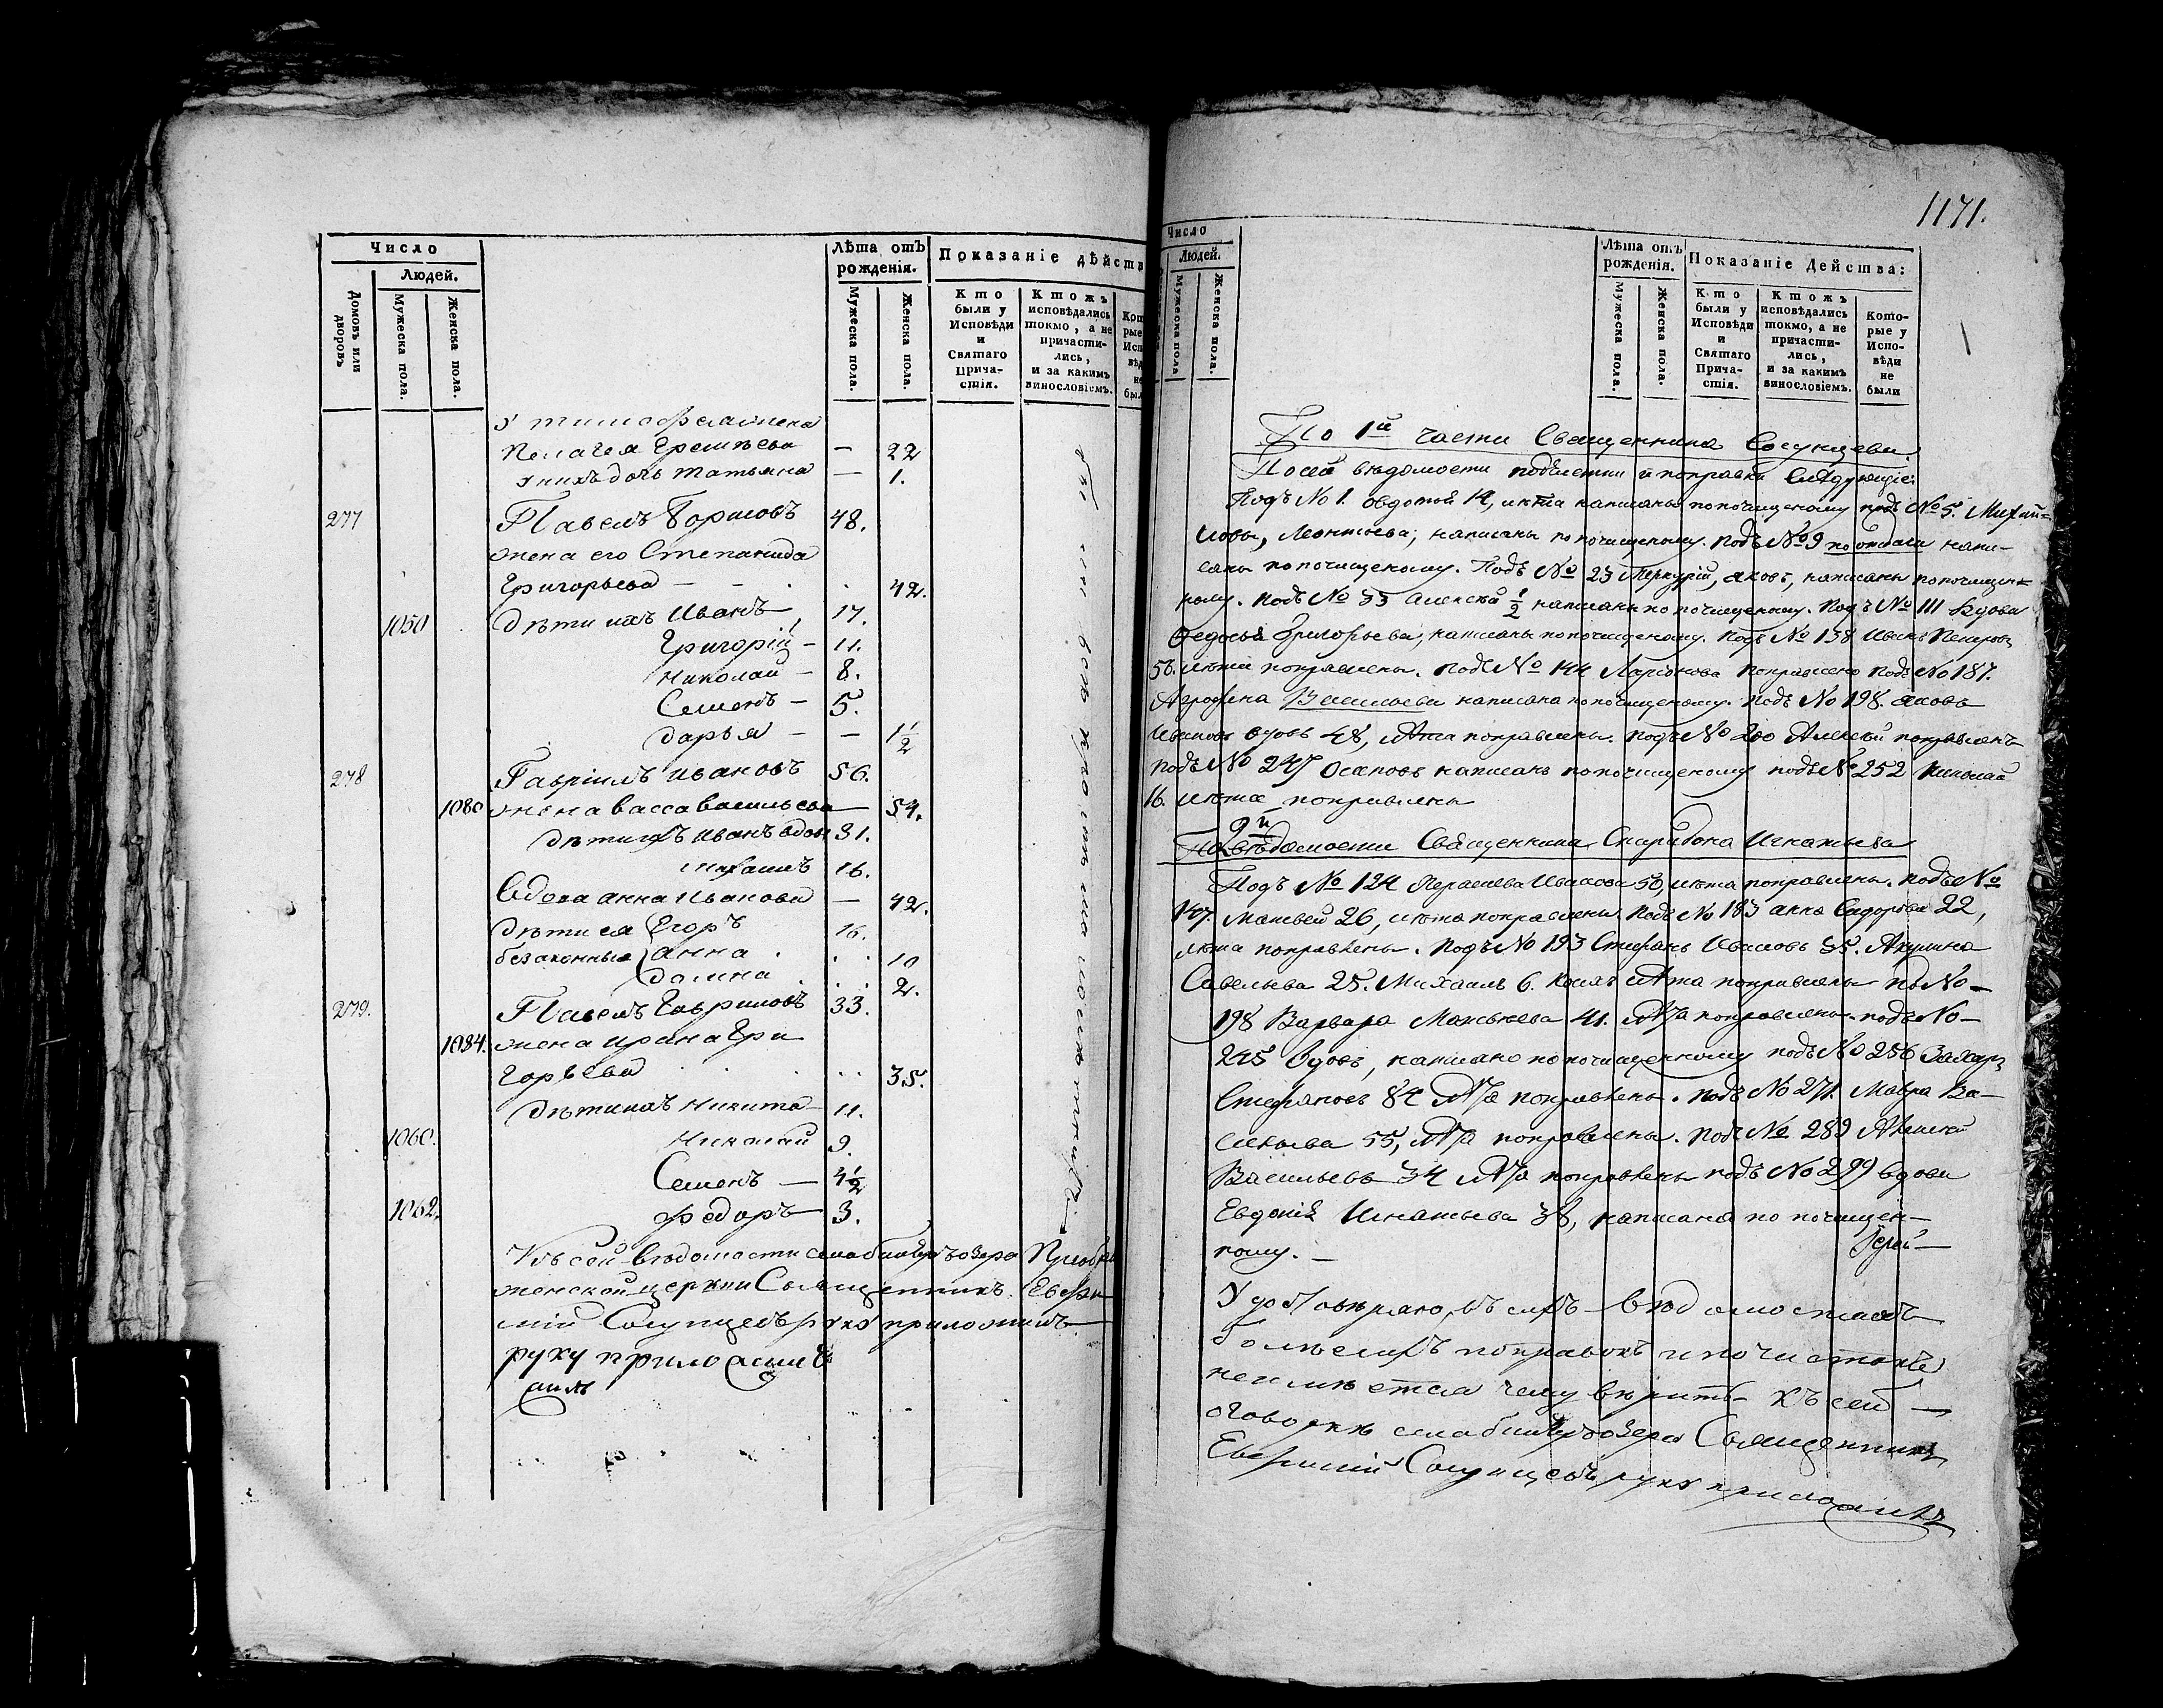 Число
Людей.
Домовъ или дворовъ
Мужеска пола.
Женска пола.
Лѣта отъ рожденія.
Мужеска пола.
Женска пола.
Показаніе дѣйств
Кто были у Исповѣди и Святаго Причастія.
Ктожъ исповѣдались токмо, а не причастились, и за какимъ винословіемъ.
жена
Пелагея Еремѣева — 22
у нихъ дочь татьяна — 1.
277 Павелъ Борисовъ 48.
жена его Степанида
Григорьева — 42.
1050 дѣти ихъ Иванъ 17.
Григорій — 11.
Николай — 8.
Семенъ — 5.
дарья — — 1 1/2
278 Гавріилъ Ивановъ 56.
1080 жена васса васильева — 54.
дѣти ихъ Иванъ вдовъ 31.
16.
Вдова анна Иванова — 42.
дѣти ея Егоръ 16.
безаконныя анна 10
2.
279. Павелъ Гавриловъ 33.
1084. жена ирина Гри
горьева 35.
дѣти ихъ Никита — 11.
1060. Николай 9.
Семенъ — 4 1/2
1062. федоръ 3.
Къ сей вѣдомости села
женской церкви Священникъ Евфи
мій руку приложилъ
руку приложилъ
1171.
Число
Людей.
Мужеска пола
Женска пола.
Лѣта отъ рожденія.
Мужеска пола.
Женска пола.
Показаніе Действа:
Кто были у Исповѣди и Святаго Причастія.
Ктожъ исповѣдались токмо, а не причастились, и за какимъ винословіемъ.
Которые у Исповѣди не были
По 1й части Священника
вѣдомости и поправки слѣдующіе:
Подъ No 1. 14, лѣта написаны по почищеному подъ No 5. Михай=
лова, Леонтьева, написаны по почищеному. Подъ No 9 напи-
саны по почищеному. Подъ No 23 Меркурій, яковъ, написаны по почищен-
ному. Подъ No 33 Алексѣй 1/2 написаны по почищеному. Подъ No 111 вдова
Федосья Григорьева, написаны по почищеному. Подъ No 138 Иванъ Петровъ
56. лѣта поправлены. Подъ No 144 Ларіонова поправлено подъ No 187.
Агрофена Васильева написана по почищеному. Подъ No 198. яковъ
Ивановъ вдовъ 48, лѣта поправлены. Подъ No 200 Алексѣй поправленъ
Подъ No 247 Осиповъ написанъ по почищеному подъ No 252 Николай
16. лѣта поправлены
вѣдомости Священника Спиридона Игнатьева
Подъ No 124 Ивановa 50, лѣта поправлены. Подъ No
147. Матвей 26, лѣта поправлены подъ No 183 анна Сидорова 22,
лѣта поправлены. Подъ No 193 Стефанъ Ивановъ 35. Акулина
Савельева 25. Михаилъ 6. коихъ лѣта поправлены No —
198 Варвара Матвѣева 41. лѣта поправлены. подъ No —
245 вдовъ, написано по почищенному подъ No 256 Захаръ
Стефановъ 84 лѣта поправлены. Подъ No 271. Мавра Ва-
сильева 55, лѣта поправлены. Подъ No 289 Алексѣй
Васильевъ 34 лѣта поправлены подъ No 299 вдова
Евдокія Игнатьева 38, написана по почищен-
ному. —
вѣдомостяхъ
поправокъ и почистокъ
не имѣется чему вѣрить къ сей —
оговоркѣ села Священникъ
Евфимій руку приложилъ